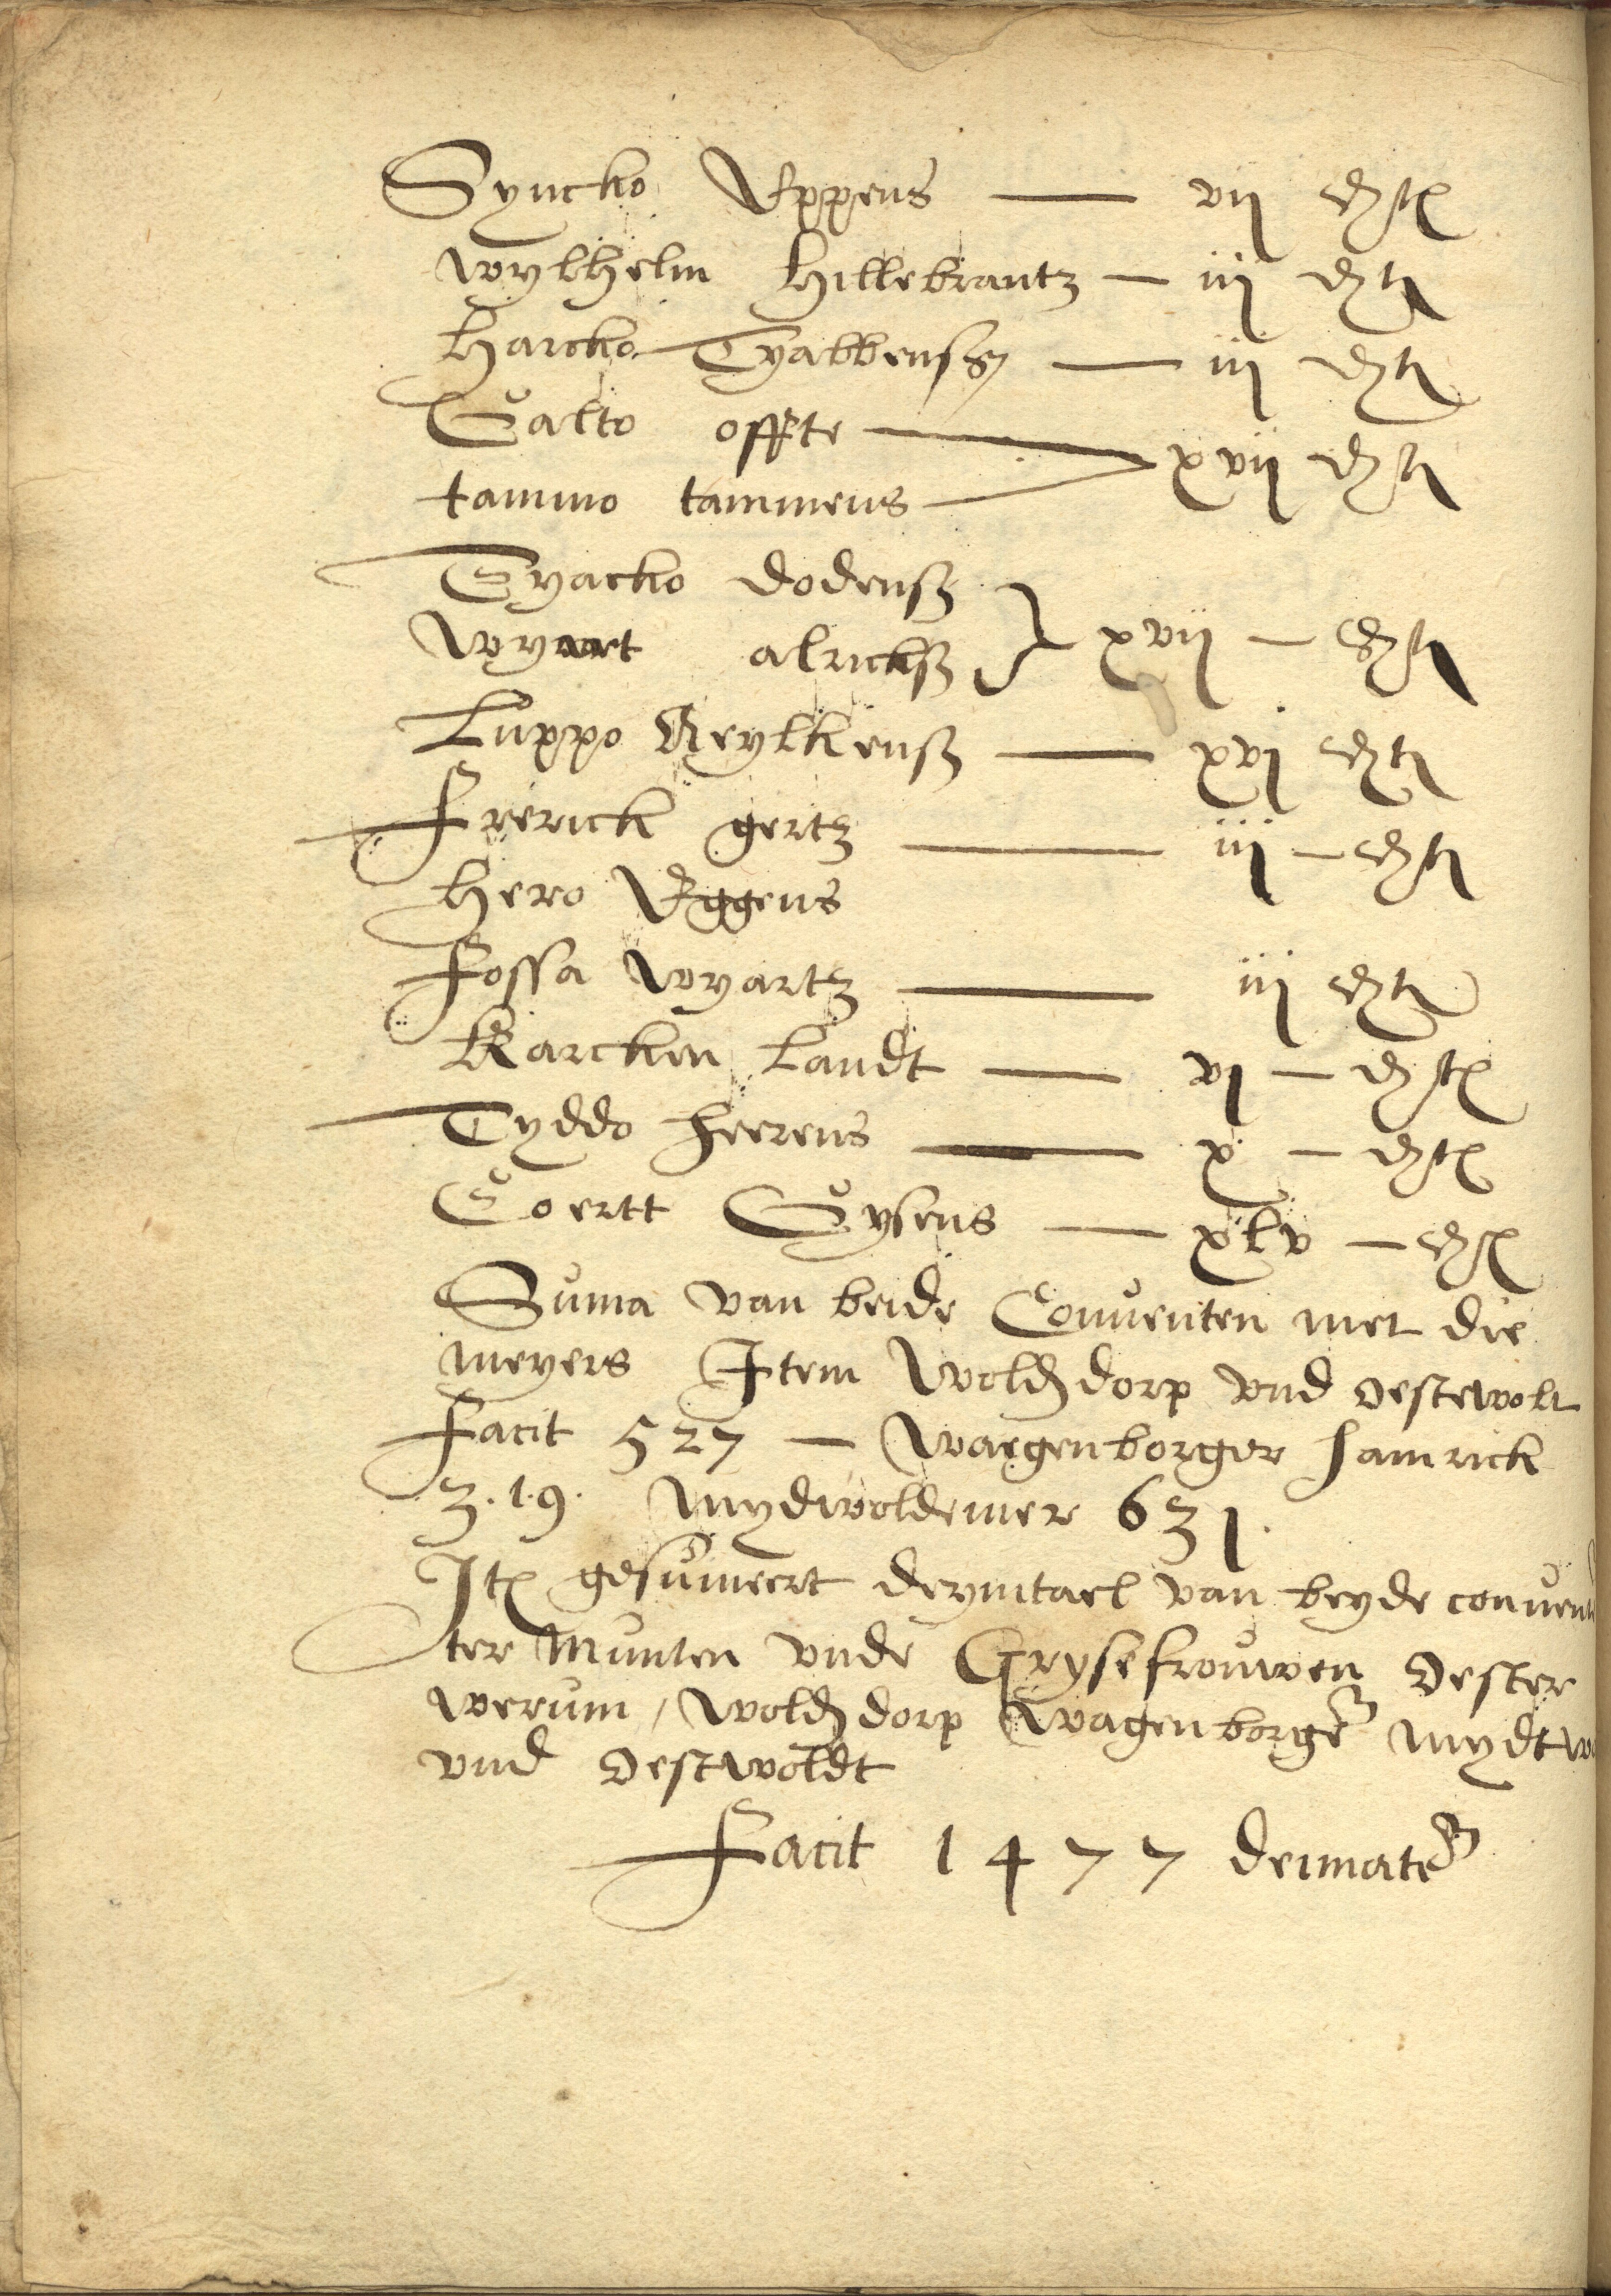 Syncko Eppens — vij d&tꝭ
Wylhelm Hillebrantz — iij d&t
Harcko Tyabbensz — iij d&t
Galto offte
tammo tammens — xvij d&t
Tyacko dodensz
Wyart alricksz } xvij — d&t
Luppo Reylkensz — xvj d&t
Frerick gertz — iij — d&t
Hero Eggens
Fossa wyartz — iij d&t
Karcken Landt — vj — d&t
Tyddo heerens — x — d&t
Coertt Gysens — xlv — d&t
Suma van beide Conuenten met die
meyers Item Woldtdorp vnd oestewolt
Facit 527 — Waegenborger hamrick
3.1.9. Mydwoldemer 631.
Itꝭ gesumeert deymtael van beyde conuent
ter Munten vnde Grysefrouwen Oester
werum / Woldtdorp Wagenborge mydtw
vnd Oestwoldt
Facit 1477 deimate